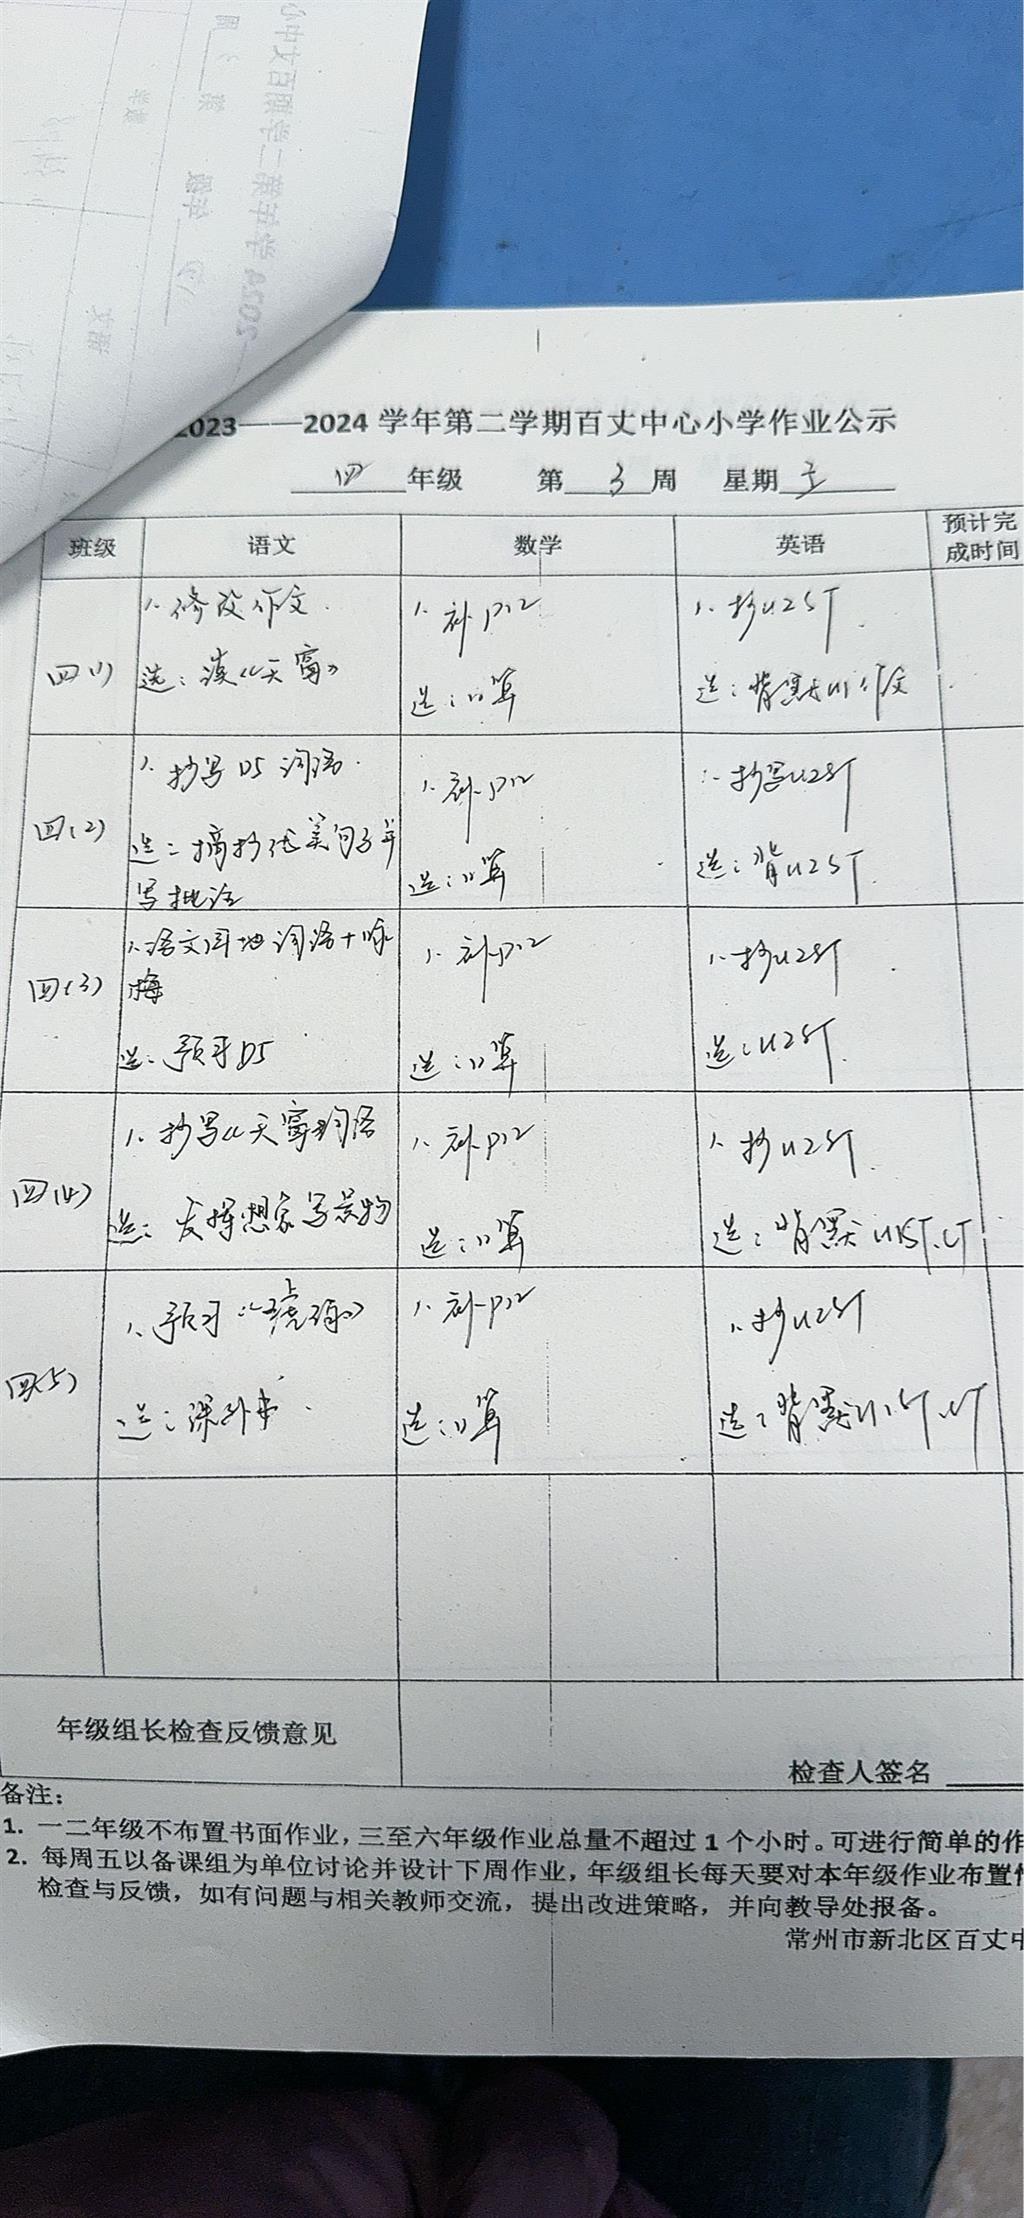 2023——2024学年第二学期百丈中心小学作业公示
四 年级 第 3 周 星期 五
班级 语文 数学 英语 预计完成时间
四(1)
1. 修改作文.
选：读《天窗》
1. 补P12
选：口算
1. 抄U2ST.
选：背默U1作文
四(2)
1. 抄写D5词语.
选：摘抄优美句子并
写批注
1. 补P12
选：口算
1. 抄写U2ST
选：背U2ST.
四(3)
1. 语文园地词语+咏
梅
选：预习D5
1. 补P12
选：口算
1. 抄U2ST
选：U2ST.
四(4)
1. 抄写《天窗》词语
选：发挥想象写景物
1. 补P12
选：口算
1. 抄U2ST.
选：背默U1ST.CT
四(5)
1. 预习《琥珀》
选：课外书.
1. 补P12
选：口算
1. 抄U2ST
选：背默U1ST.CT
年级组长检查反馈意见
检查人签名
备注：
1. 一二年级不布置书面作业，三至六年级作业总量不超过1个小时。可进行简单的作
2. 每周五以备课组为单位讨论并设计下周作业，年级组长每天要对本年级作业布置
检查与反馈，如有问题与相关教师交流，提出改进策略，并向教导处报备。
常州市新北区百丈中